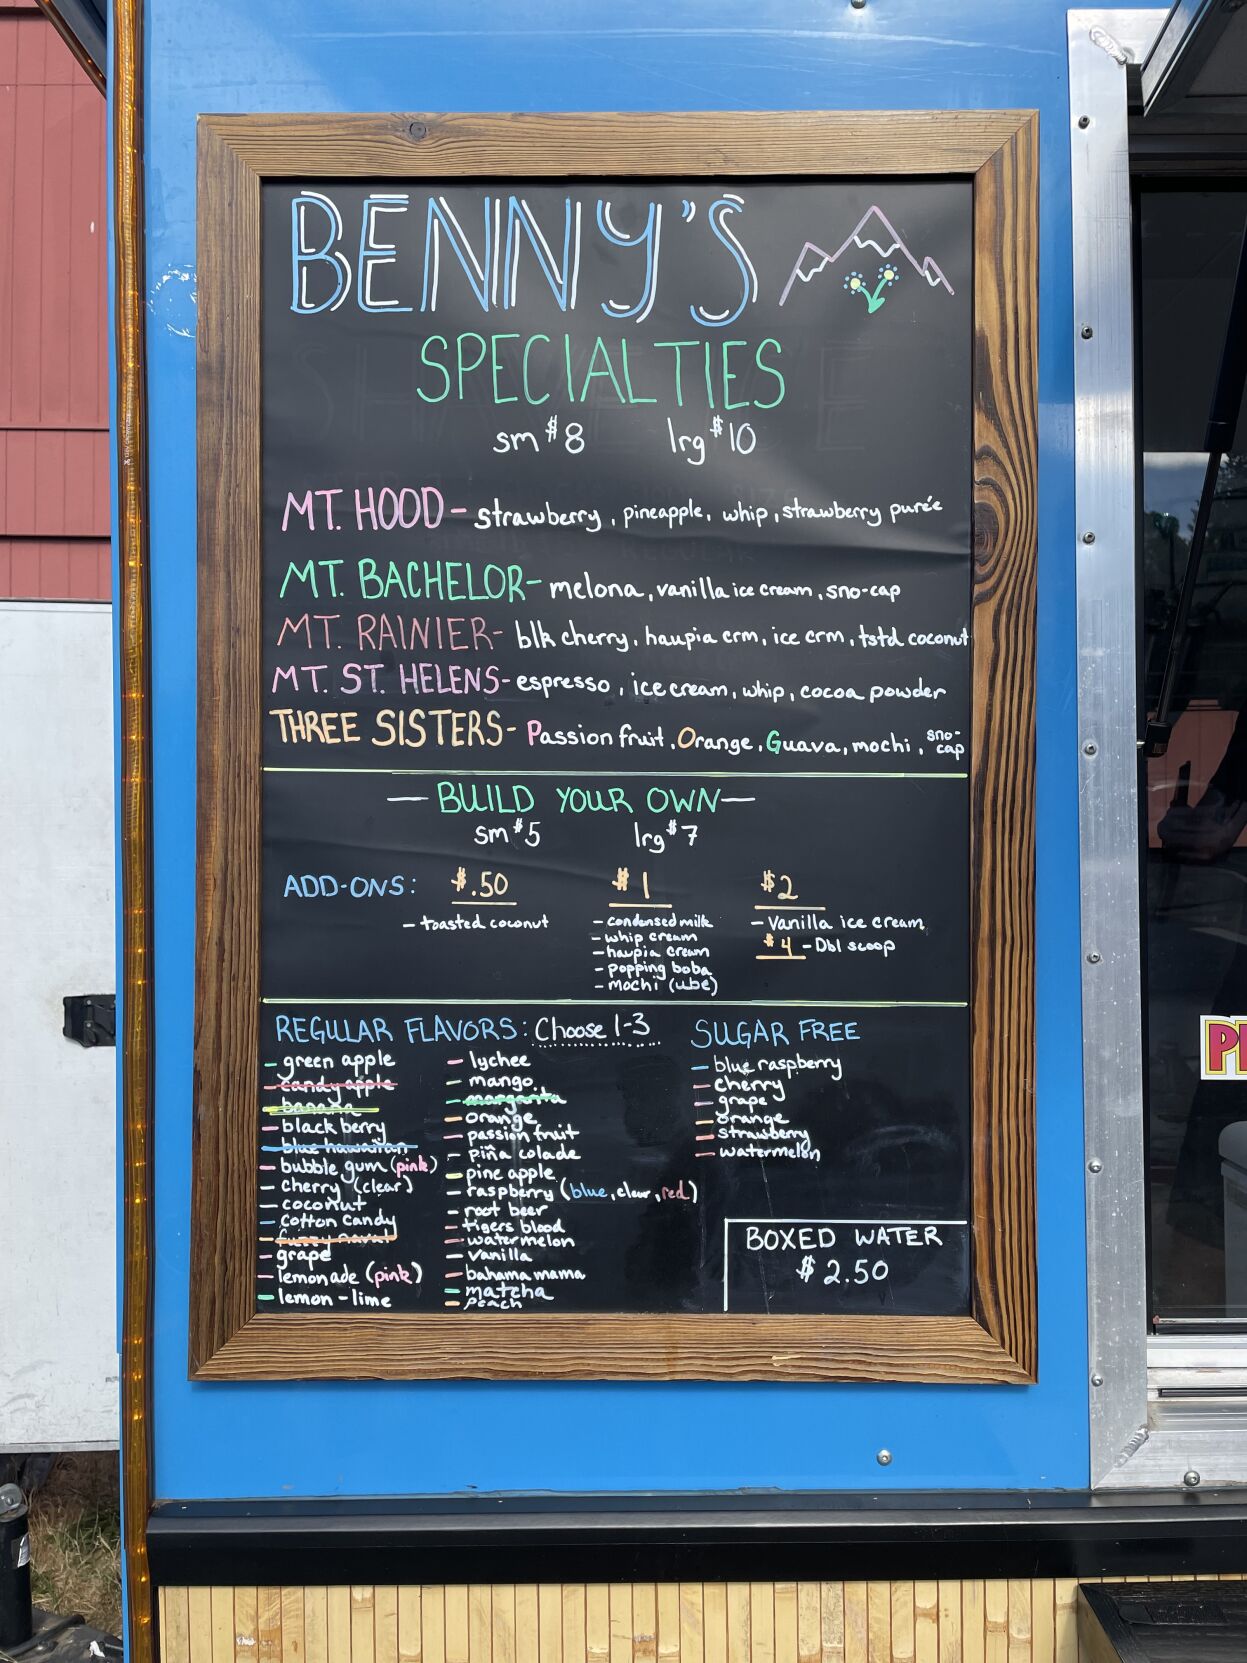 BENNY'S
SPECIALTIES
sm $8 lrg $10
MT. HOOD - strawberry, pineapple, whip, strawberry pureé
MT. BACHELOR - melona, vanilla ice cream, sno-cap
MT. RAINIER - blk cherry, haupia crm, ice crm, tstd coconut
MT. ST. HELENS - espresso, ice cream, whip, cocoa powder
THREE SISTERS - Passion fruit, Orange, Guava, mochi, sno-cap
— BUILD YOUR OWN —
sm $5 lrg $7
ADD-ONS: $.50 $1 $2
- toasted coconut
- condensed milk
- whip cream
- haupia cream
- popping boba
- mochi (ube)
- Vanilla ice cream
$4 - Dbl scoop
REGULAR FLAVORS: Choose 1-3
- green apple
- candy apple
- banana
- black berry
- blue hawaiian
- bubble gum (pink)
- cherry (clear)
- coconut
- cotton candy
- fuzzy naval
- grape
- lemonade (pink)
- lemon-lime
- lychee
- mango
- margarita
- orange
- passion fruit
- piña colade
- pine apple
- raspberry (blue, clear, red)
- root beer
- tigers blood
- watermelon
- vanilla
- bahama mama
- matcha
- peach
SUGAR FREE
- blue raspberry
- cherry
- grape
- orange
- strawberry
- watermelon
BOXED WATER
$2.50